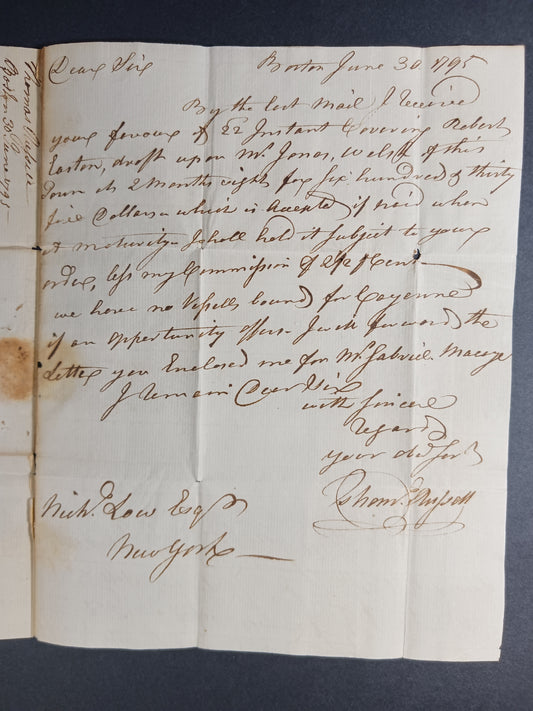 Dear Sir Boston June 30 1795
By the last Mail I receive
your favour of 22 Instant Covering Robert
Easton, draft upon Mr. Jonas, Welsh of this
Town at 2 Months sight for six hundred & thirty
five Dollars which is Accepted if paid when
at maturity I shall hold it subject to your
order, less my Commission of 2 1/2 P Cent
we have no Vessells bound for Cayenne
if an opportunity offers I will forward the
Letter you Enclosed me for Mr. Gabriel
I remain Dear Sir
with Sincere
regard
your obt Sert
Thoms. Russell
Nichs. Low Esqr
New York
Thomas Russell
Boston 30 June 1795